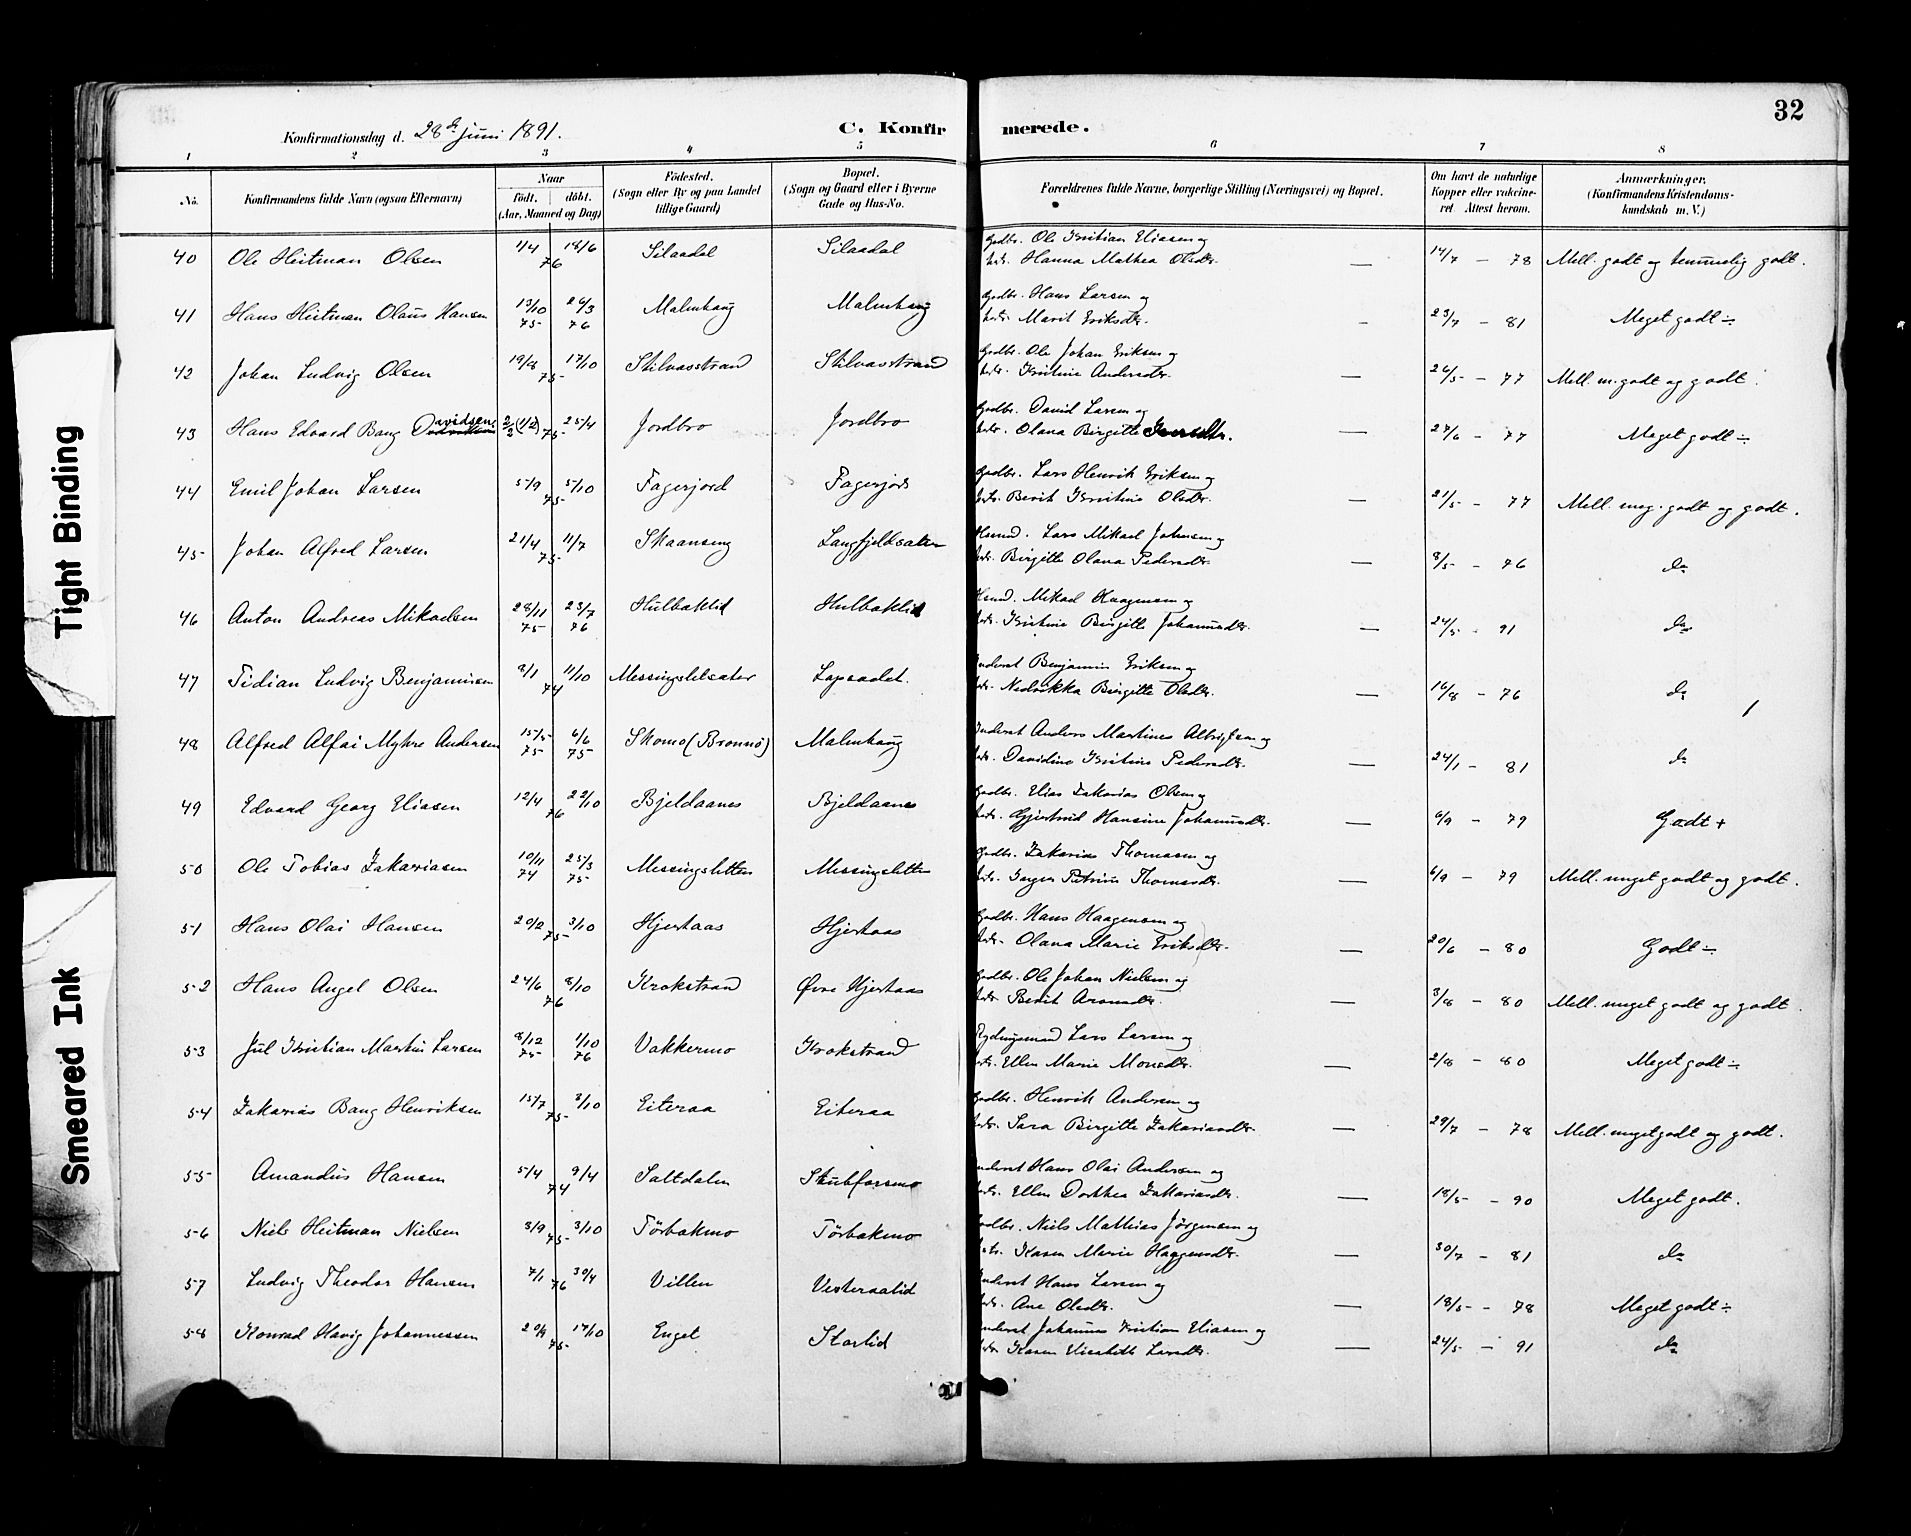 32
Konfirmationsdag d. 28de juni 1891.
C. Konfirmerede.
1 2 3 4 5 6 7 8
No. Konfirmandens fulde Navn (ogsaa Efternavn) Naar födt. döbt. (Aar, Maaned og Dag) Födested. (Sogn eller By og paa Landet tillige Gaard) Bopæl. (Sogn og Gaard eller i Byerne Gade og Hus-No. Forældrenes fulde Navne, borgerlige Stilling (Næringsvei) og Bopæl. Om havt de naturlige Kopper eller vakcineret Attest herom. Anmærkninger. (Konfirmandens Kristendomskundskab m. V.)
40 Ole Heitman Olsen 1/4 18/6 76 Silaadal Silaadal Gbr. Ole Kristian Eliasen og
Hanna Mathea Olsdtr. — 14/7 - 78 Mell. godt og temmelig godt.
41 Hans Heitman Olaus Hansen 13/10 75 26/3 76 Malmhaug Malmhaug Gdbr. Hans Larsen og
Marit Eriksdtr. - 23/7 - 81 Meget godt ÷
42 Johan Ludvig Olsen 19/8 17/10 75 Stilvasstrand Stilvasstrand Gdbr. Ole Johan Eriksen og
Kristine Andersdtr. — 26/5 - 77 Mell. m. godt og godt.
43 Hans Edvard Bang Davidsen 2/2 (1/2) 25/4 75 Jordbro Jordbro Gdbr. David Larsen og
Olana Birgitte — 27/6 - 77 Meget godt ÷
44 Emil Johan Larsen 5/9 5/10 75 Fagerjord Fagerjord Gdbr. Lars Henrik Eriksen og
Berit Kristine Olsdtr. — 21/5 - 77 Mell. meg. godt og godt.
45 Johan Alfred Larsen 21/4 11/7 75 Skaanseng Langfjeldsæter Husmd. Lars Mikael Johnsen og
Birgitte Olana Pedersdtr. — 8/5 - 76 do
46 Anton Andreas Mikaelsen 28/11 75 23/7 76 Hulbaklid Hulbaklid Husmd. Mikael Haagensen og
Kristine Birgitte Johannesdtr. — 24/5 - 91 do
47 Tidian Ludvig Benjaminsen 8/1 11/10 74 Messingsletsæter Lapsadet. Inderst Benjamin Eriksen og
Nedrikka Birgitte Olsdtr. — 16/8 - 76 do
48 Alfred Alfai Myhre Andersen 15/5 75 6/6 75 Skomo (Brönnö) Malmhaug Inderst Anders Martines Albrigtsen og
Davidine Kristine Pedersdtr. — 24/1 - 81 do
49 Edvard Georg Eliasen 12/4 22/10 76 Bjeldaanes Bjeldaanes Gdbr. Elias Zakarias Olsen og
Gjertrud Hansine Johannesdtr. — 6/9 - 79 Godt +
50 Ole Tobias Zakariasen 10/11 74 25/3 75 Messingsletten Messingsletten Gdbr. Zakarias Thomasen og
Petrine Thomasdtr. — 6/9 - 79 Mell. meget godt og godt.
51 Hans Olai Hansen 20/2 3/10 75 Hjertaas Hjertaas Gdbr. Hans Haagensen og
Olana Marie Eriksdtr. — 20/6 - 80 Godt ÷
52 Hans Angel Olsen 24/6 8/10 76 Krokstrand Øvre Hjertaas Gdbr. Ole Johan Nielsen og
Berit Aronsdtr. — 3/8 - 80 Mell. meget godt og godt.
53 Jul Kristian Martin Larsen 8/12 75 1/10 76 Vakkermo Krokstrand Rydningsmand Lars Larsen og
Ellen Marie Monsdtr. — 2/8 - 80 Meget godt ÷
54 Zakarias Bang Henriksen 15/7 3/10 75 Eiteraa Eiteraa Gdbr. Henrik Andersen og
Sara Birgitte Zakariasdtr. — 29/7 - 78 Mell. meget godt og godt.
55 Amandus Hansen 5/4 9/4 74 Saltdalen Stubforsmo Inderst Hans Olai Andersen og
Ellen Dorthea Zakariasdtr. — 18/5 - 90 Meget godt.
56 Niels Heitman Nielsen 8/9 3/10 75 Törbakmo Törbakmo Gdbr. Niels Mathias Jörgensen og
Karen Marie Haagensdtr. — 30/7 - 81 do
57 Ludvig Theodor Hansen 7/1 30/4 76 Villen Vesteraalid Inderst Hans Larsen og
Ane Olsdtr. — 18/5 - 78 Meget godt ÷
58 Konrad Havig Johannessen 20/9 17/10 75 Enget Storlid Inderst Johannes Kristian Eliasen og
Karen Elisabeth Larsdtr. — 24/5 - 91 do
Tight Binding
Smeared Ink